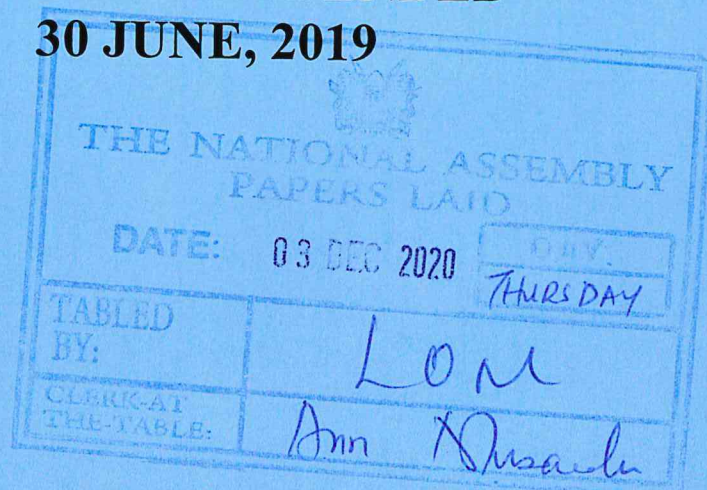 30 JUNE, 2019
THE NATIONAL ASSEMBLY
PAPERS LAID
DATE: 03 DEC 2020 DAY.
THURSDAY
TABLED
BY: LOM
CLERK-AT
THE-TABLE: Ann